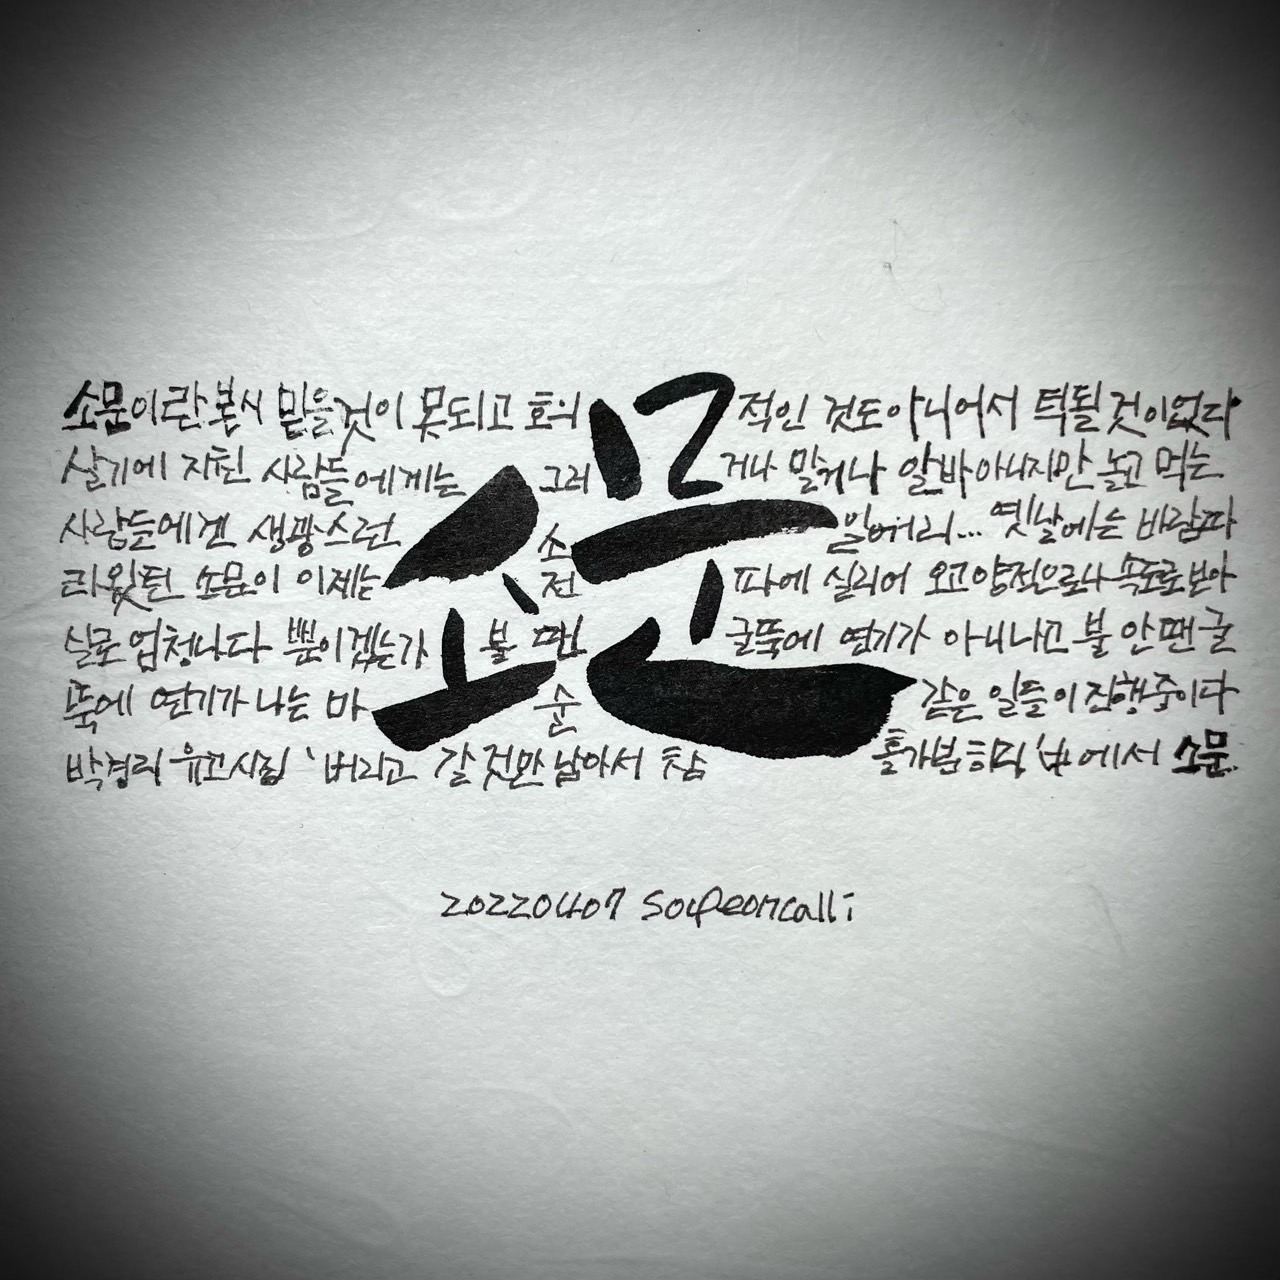 소문
소문이란 본시 믿을 것이 못되고 호의적인 것도 아니어서 턱될 것이 없다
살기에 지친 사람들에게는 그러거나 말거나 알바 아니지만 놀고 먹는
사람들에겐 생광스런 소일거리... 옛날에는 바람따
라 왔던 소문이 이제는 전파에 실리어 오고 양적으로나 속도로 보아
실로 엄청나다 뿐이겠는가 불 땐 굴뚝에 연기가 아니나고 불 안 땐 굴
뚝에 연기가 나는 바 순 같은 일들이 진행중이다
박경리 유고시집 '버리고 갈 것만 남아서 참 홀가분하다' 에서 소문.
20220407 Soupeoncalli